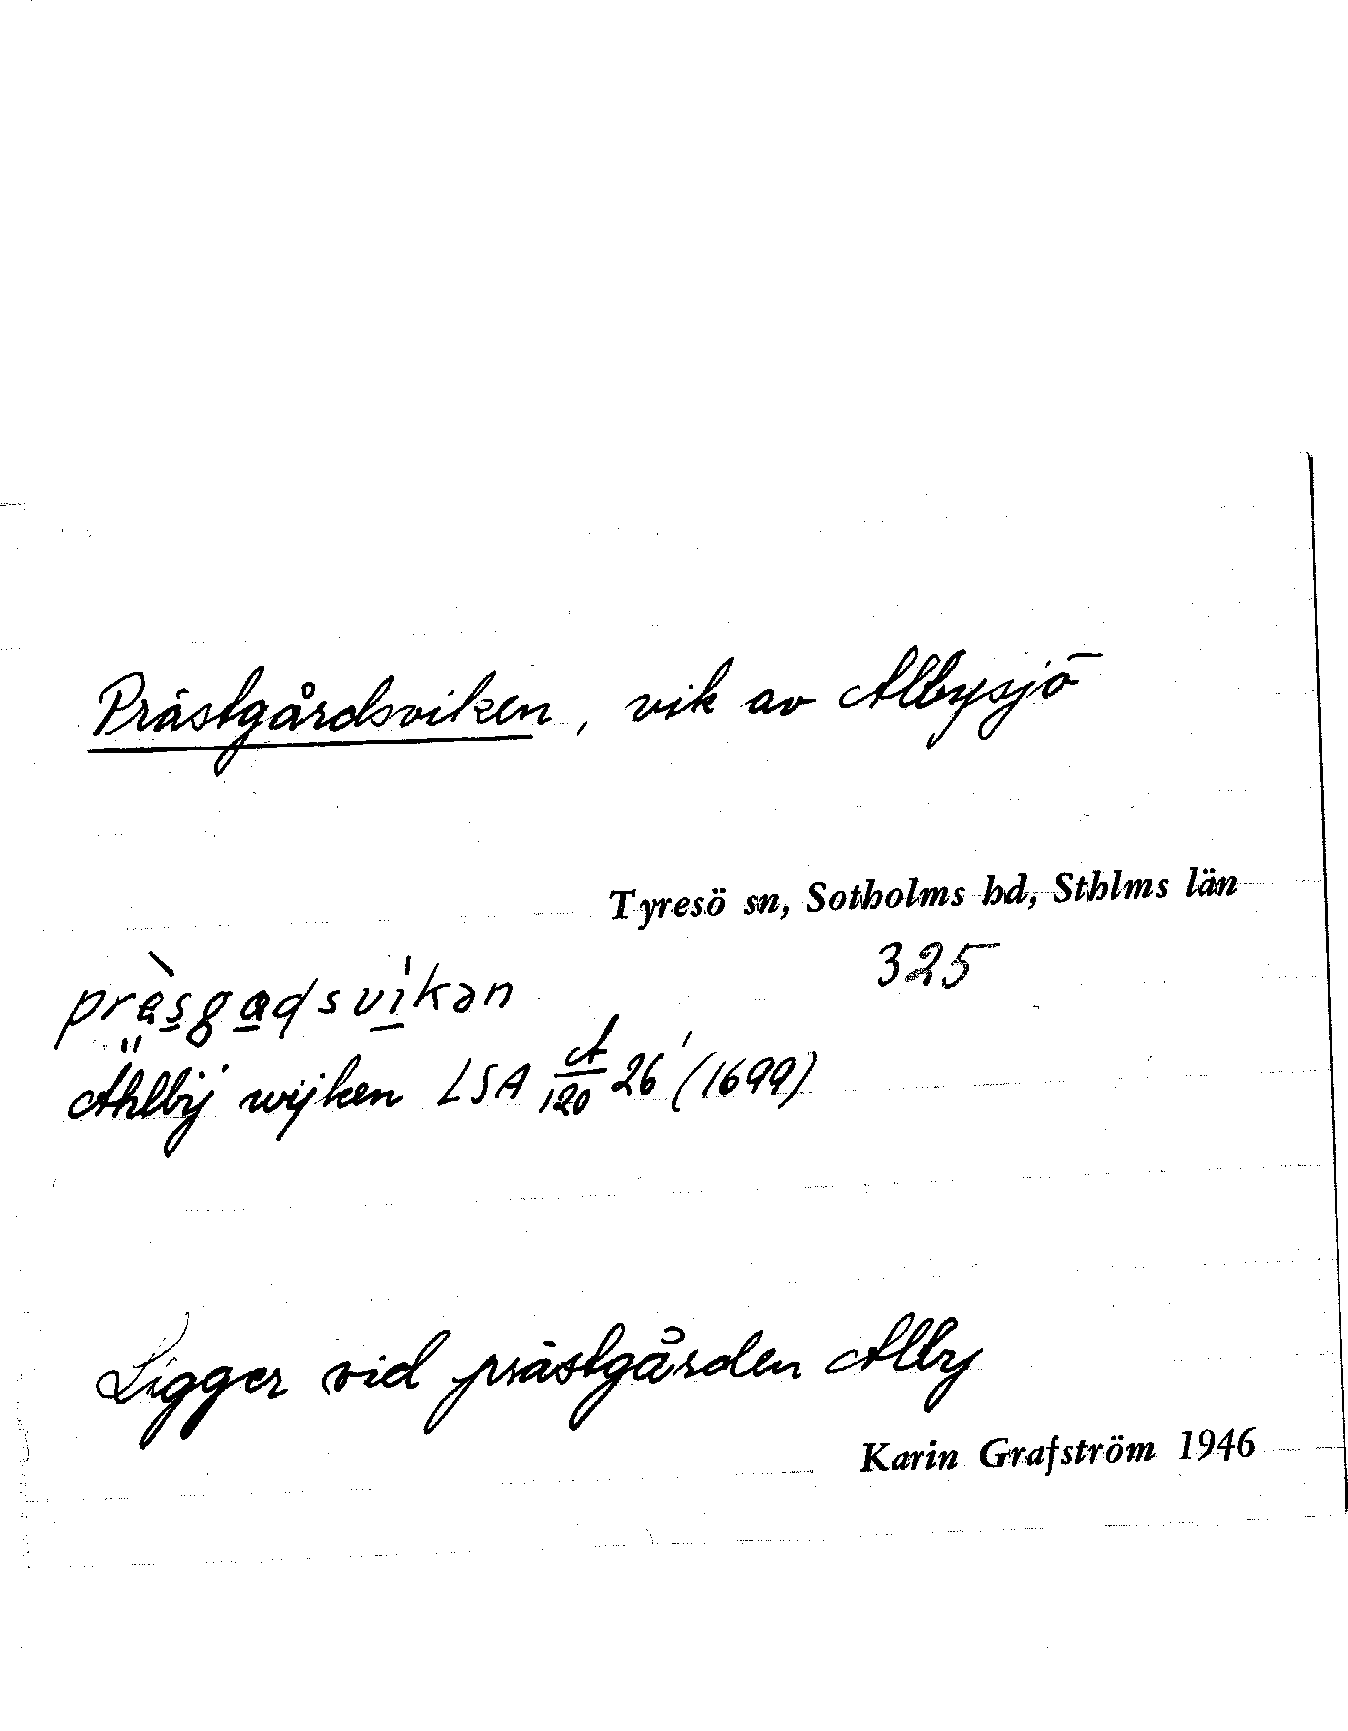 Prästgårdsviken, vik av Albysjö
Tyresö sn, Sotholms hd, Sthlms län
325
prèsgadsvíkən
Ählbij wijken LSA A/120 26' (1699)
Ligger vid prästgården Alby
Karin Grafström 1946